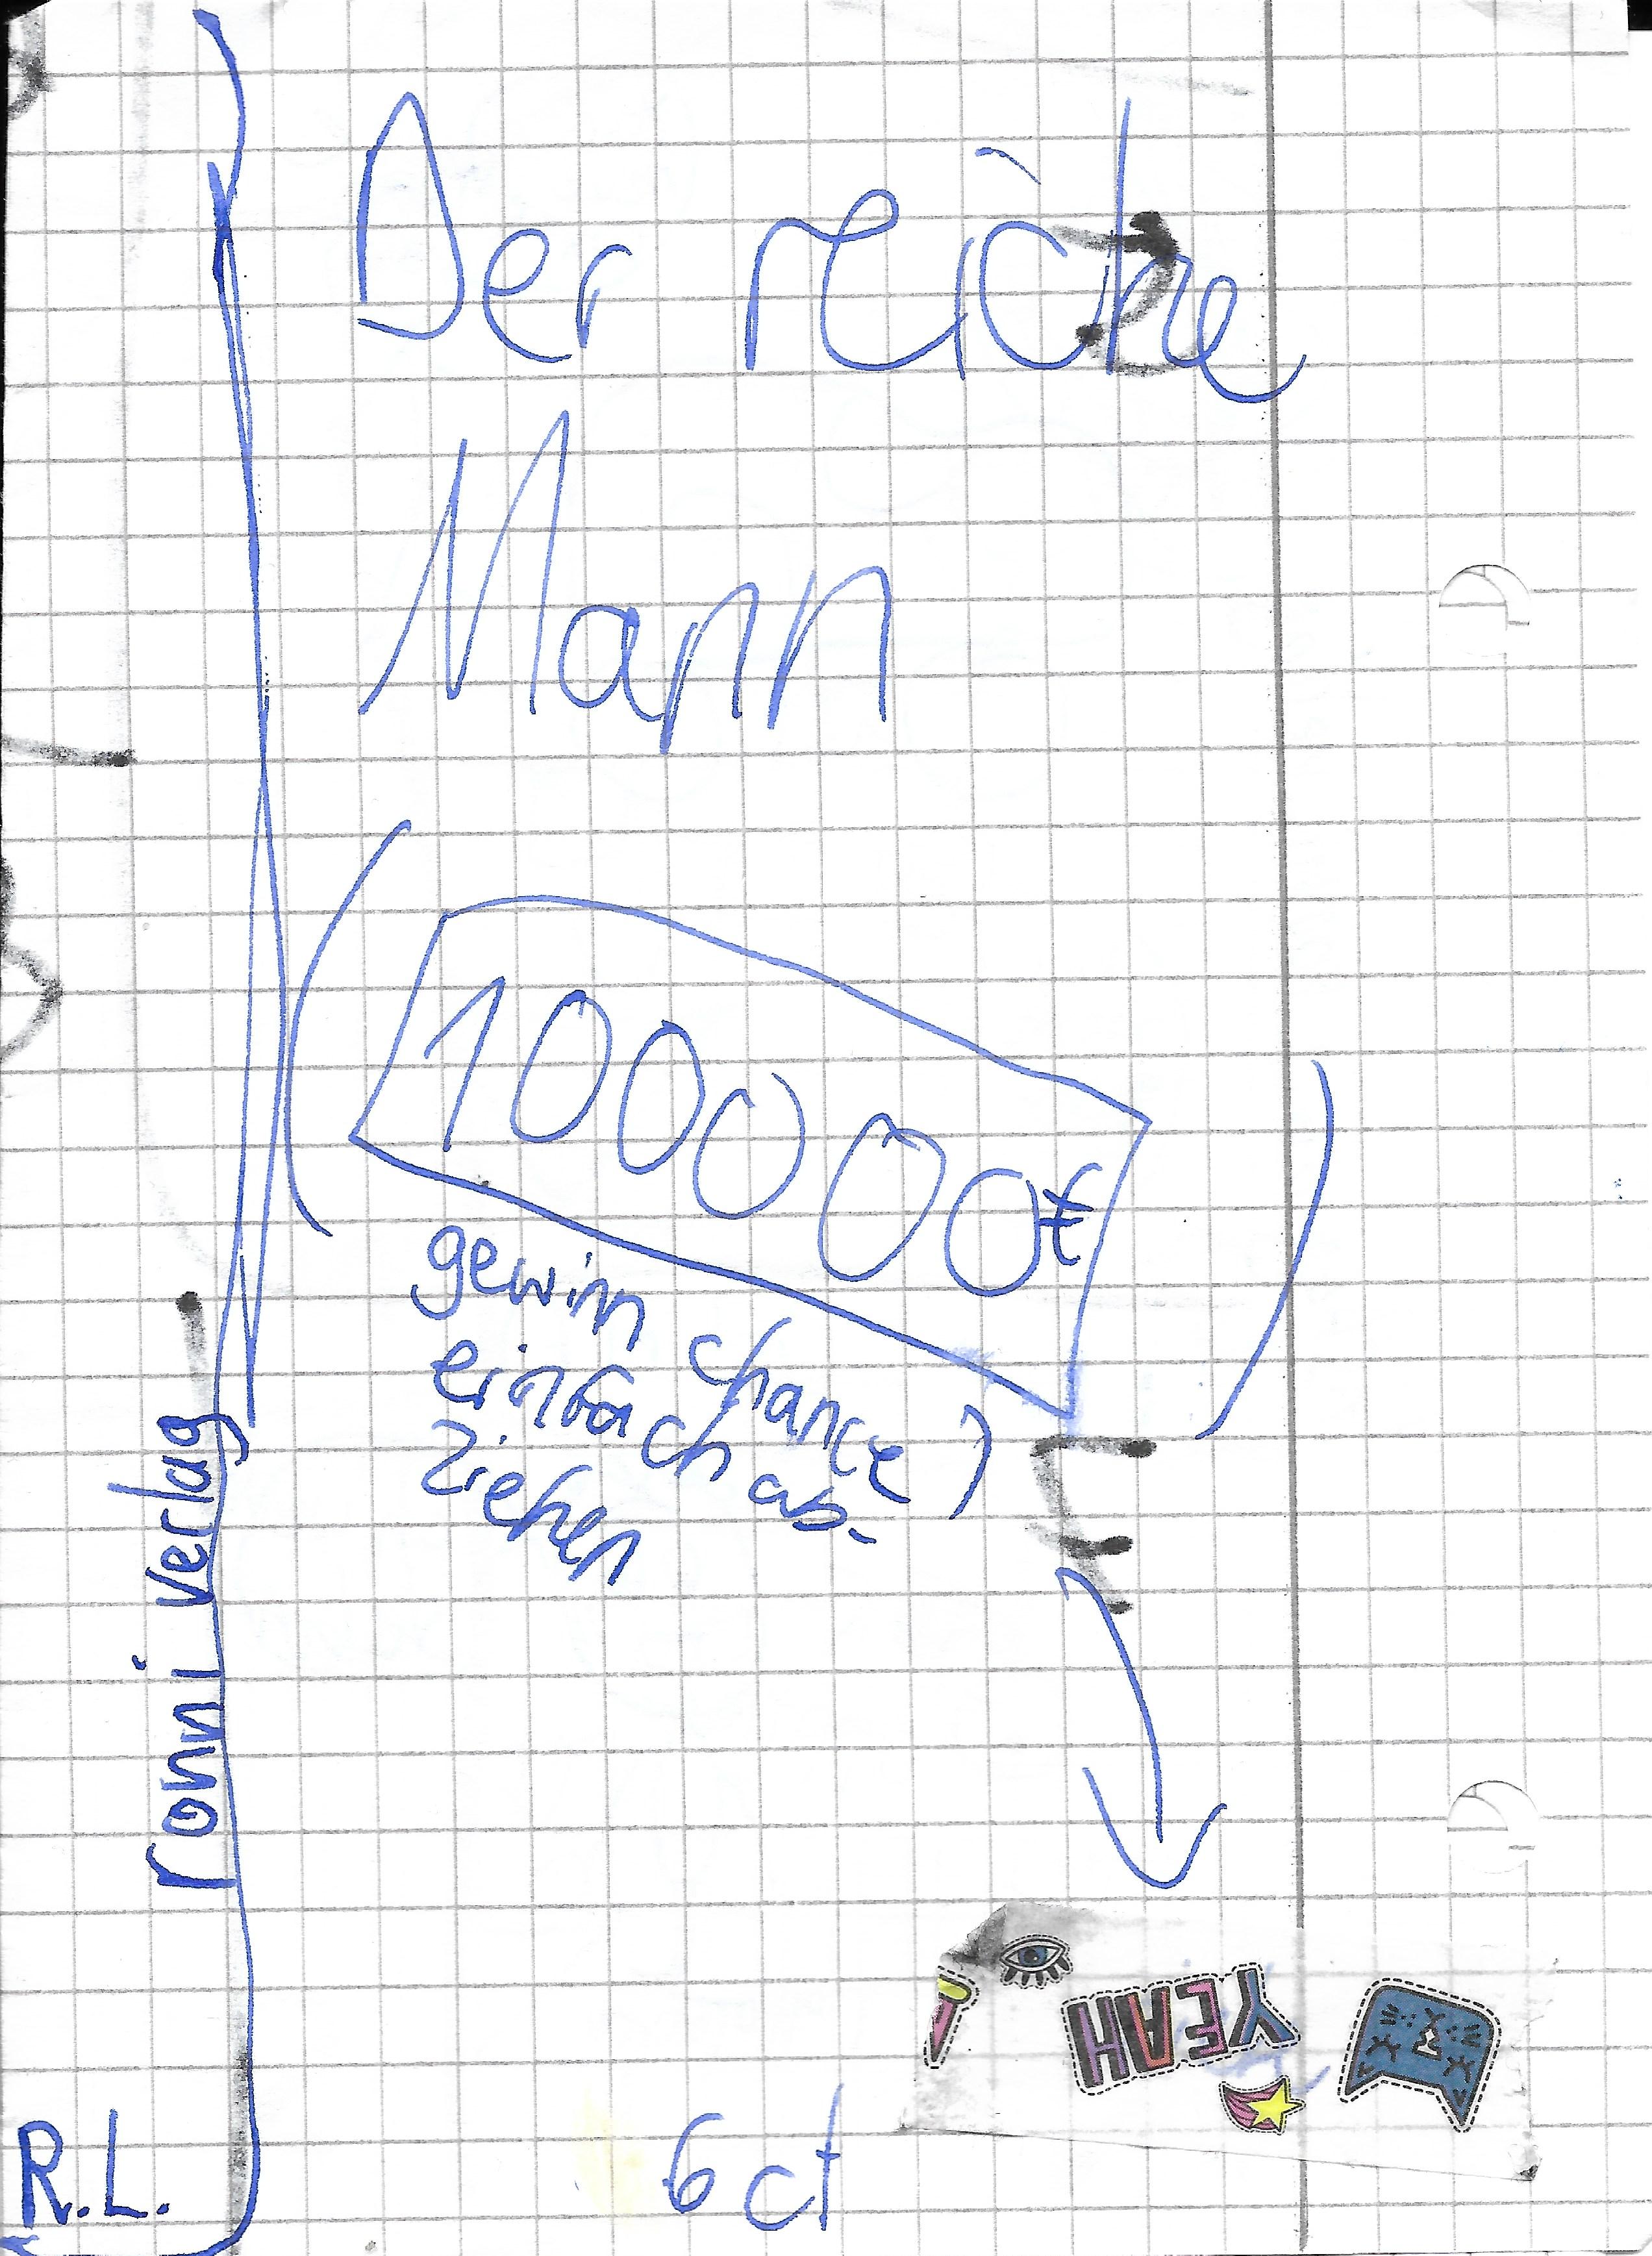 Der reiche
Mann
100000€
gewinn chance
einfach ab-
ziehen
ronni verlag
YEAH
R.L.
6 ct